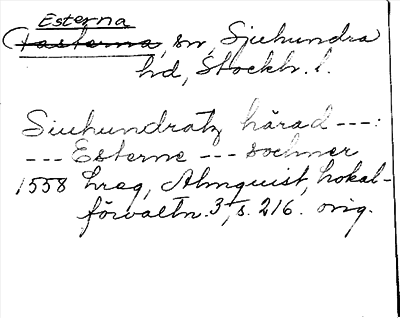 Esterna
Fasterna, sn, Sjuhundra
hd, Stockh. l.
Siuhundratz härad ---:
--- Esterne --- sochner
1558 hreg, Almquist, Lokal-
förvaltn. 3, s. 216. orig.